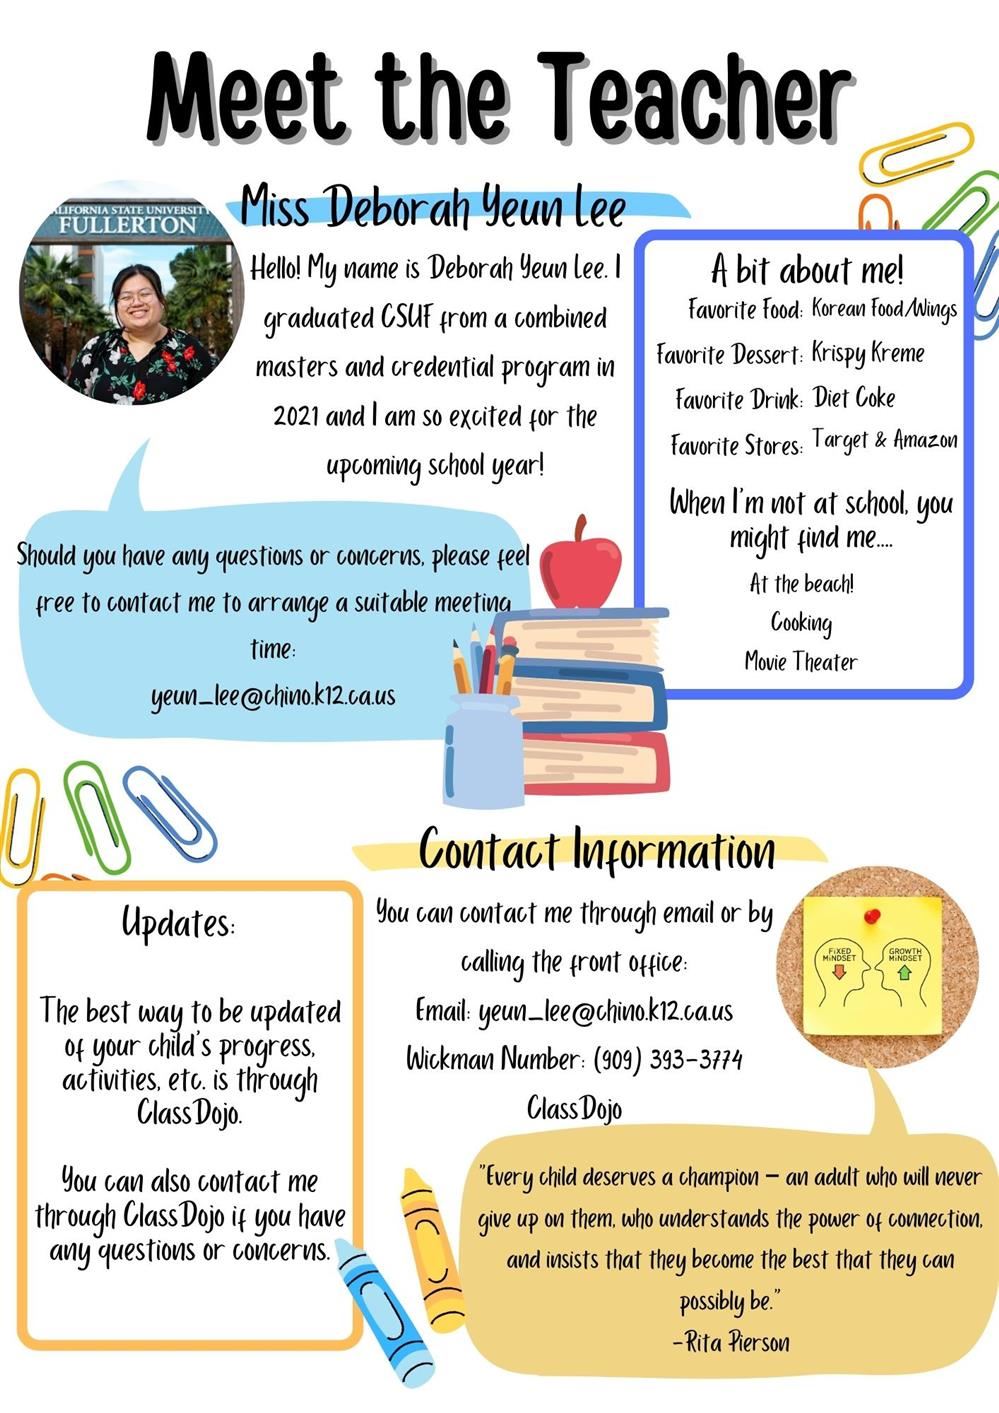 Meet the Teacher
CALIFORNIA STATE UNIVERSITY
FULLERTON
Miss Deborah Yeun Lee
Hello! My name is Deborah Yeun Lee. I
graduated CSUF from a combined
masters and credential program in
2021 and I am so excited for the
upcoming school year!
A bit about me!
Favorite Food: Korean Food/Wings
Favorite Dessert: Krispy Kreme
Favorite Drink: Diet Coke
Favorite Stores: Target & Amazon
When I'm not at school, you
might find me....
At the beach!
Cooking
Movie Theater
Should you have any questions or concerns, please feel
free to contact me to arrange a suitable meeting
time:
yeun_lee@chino.k12.ca.us
Contact Information
You can contact me through email or by
calling the front office:
Email: yeun_lee@chino.k12.ca.us
Wickman Number: (909) 393-3774
ClassDojo
FIXED
MINDSET
GROWTH
MINDSET
Updates:
The best way to be updated
of your child's progress,
activities, etc. is through
ClassDojo.
You can also contact me
through ClassDojo if you have
any questions or concerns.
"Every child deserves a champion – an adult who will never
give up on them, who understands the power of connection,
and insists that they become the best that they can
possibly be."
-Rita Pierson